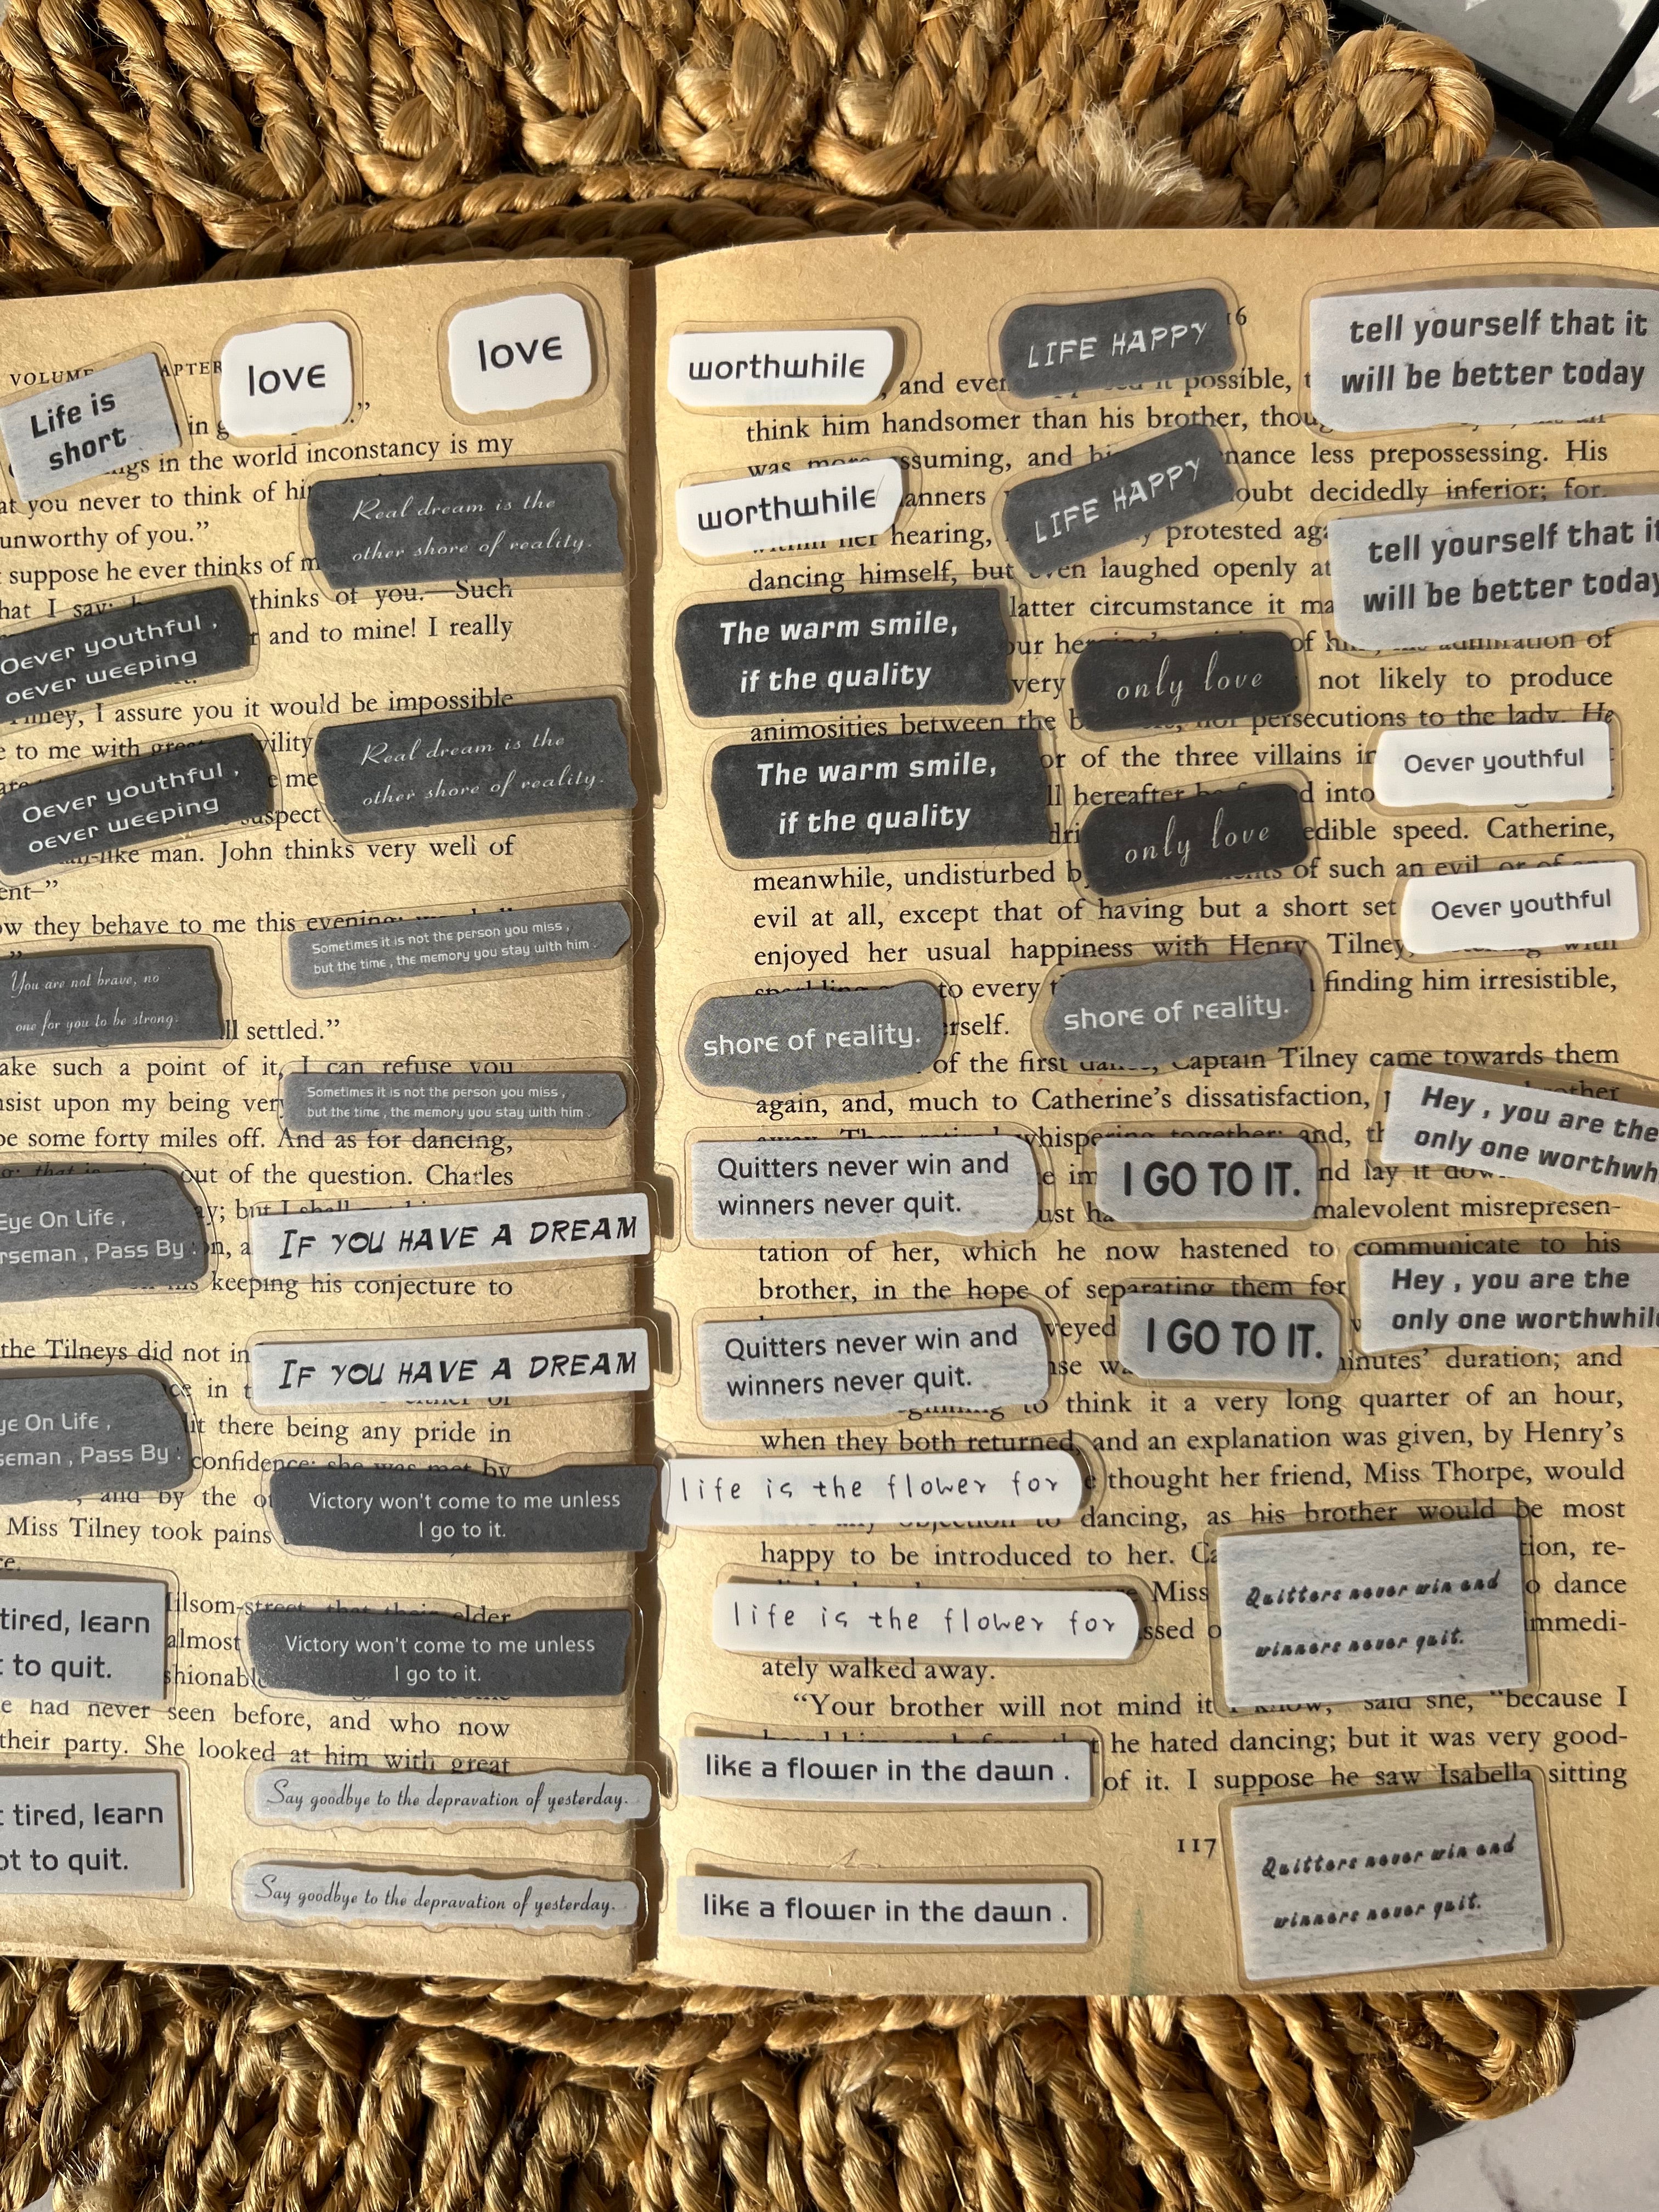 VOLUME
APTER
Life is
short
love
love
in
ngs in the world inconstancy is my
at you never to think of
unworthy of you.”
suppose he ever thinks of
Real dream is the
other shore of reality.
hat I say;
thinks of you.—Such
and to mine! I really
Oever youthful ,
oever weeping
ilney, I assure you it would be impossible
e to me with
vility
me
Real dream is the
other shore of reality.
Oever youthful ,
oever weeping
suspect
-like man. John thinks very well of
ent–”
ow they behave to me this evening;
Sometimes it is not the person you miss ,
but the time , the memory you stay with him .
You are not brave, no
one for you to be strong.
ll settled.”
ake such a point of it, I can refuse you
nsist upon my being very
Sometimes it is not the person you miss ,
but the time , the memory you stay with him .
be some forty miles off. And as for dancing,
out of the question. Charles
Eye On Life ,
rseman , Pass By .
IF YOU HAVE A DREAM
keeping his conjecture to
the Tilneys did not in
IF YOU HAVE A DREAM
in
ye On Life ,
seman , Pass By .
it there being any pride in
confidence; she was met by
and by the
Victory won't come to me unless
I go to it.
Miss Tilney took pains
ce.
ilsom-street, that their elder
almost
shionabl
tired, learn
to quit.
Victory won't come to me unless
I go to it.
e had never seen before, and who now
their party. She looked at him with great
Say goodbye to the depravation of yesterday.
tired, learn
ot to quit.
Say goodbye to the depravation of yesterday.
16
worthwhile
LIFE HAPPY
tell yourself that it
will be better today
and even
possible,
think him handsomer than his brother,
was more assuming, and
nance less prepossessing. His
worthwhile
anners
LIFE HAPPY
oubt decidedly inferior; for,
within her hearing,
protested
tell yourself that it
will be better today
dancing himself, but even laughed openly at
latter circumstance it
The warm smile,
if the quality
our heroine's
of
admiration of
very
only love
not likely to produce
animosities between the
nor persecutions to the lady. He
The warm smile,
if the quality
or of the three villains in
Oever youthful
ll hereafter be
into
only love
edible speed. Catherine,
meanwhile, undisturbed
of such an evil, or of any
evil at all, except that of having but a short set
Oever youthful
enjoyed her usual happiness with Henry Tilney,
with
sparkling
to every
finding him irresistible,
shore of reality.
rself.
shore of reality.
of the first
Captain Tilney came towards them
again, and, much to Catherine's dissatisfaction,
Hey , you are the
only one worthwh
away. They retired whispering together; and,
Quitters never win and
winners never quit.
I GO TO IT.
nd lay it
ust
malevolent misrepresen-
tation of her, which he now hastened to communicate to his
brother, in the hope of separating them for
Hey , you are the
only one worthwhile
Quitters never win and
winners never quit.
veyed
I GO TO IT.
inutes' duration; and
to think it a very long quarter of an hour,
when they both returned, and an explanation was given, by Henry's
life is the flower for
thought her friend, Miss Thorpe, would
have any objection to dancing, as his brother would be most
happy to be introduced to her.
re-
Quitters never win and
winners never quit.
life is the flower for
Miss
dance
immedi-
ately walked away.
“Your brother will not mind it
know,” said she, “because I
he hated dancing; but it was very good-
like a flower in the dawn .
of it. I suppose he saw Isabella sitting
117
Quitters never win and
winners never quit.
like a flower in the dawn .